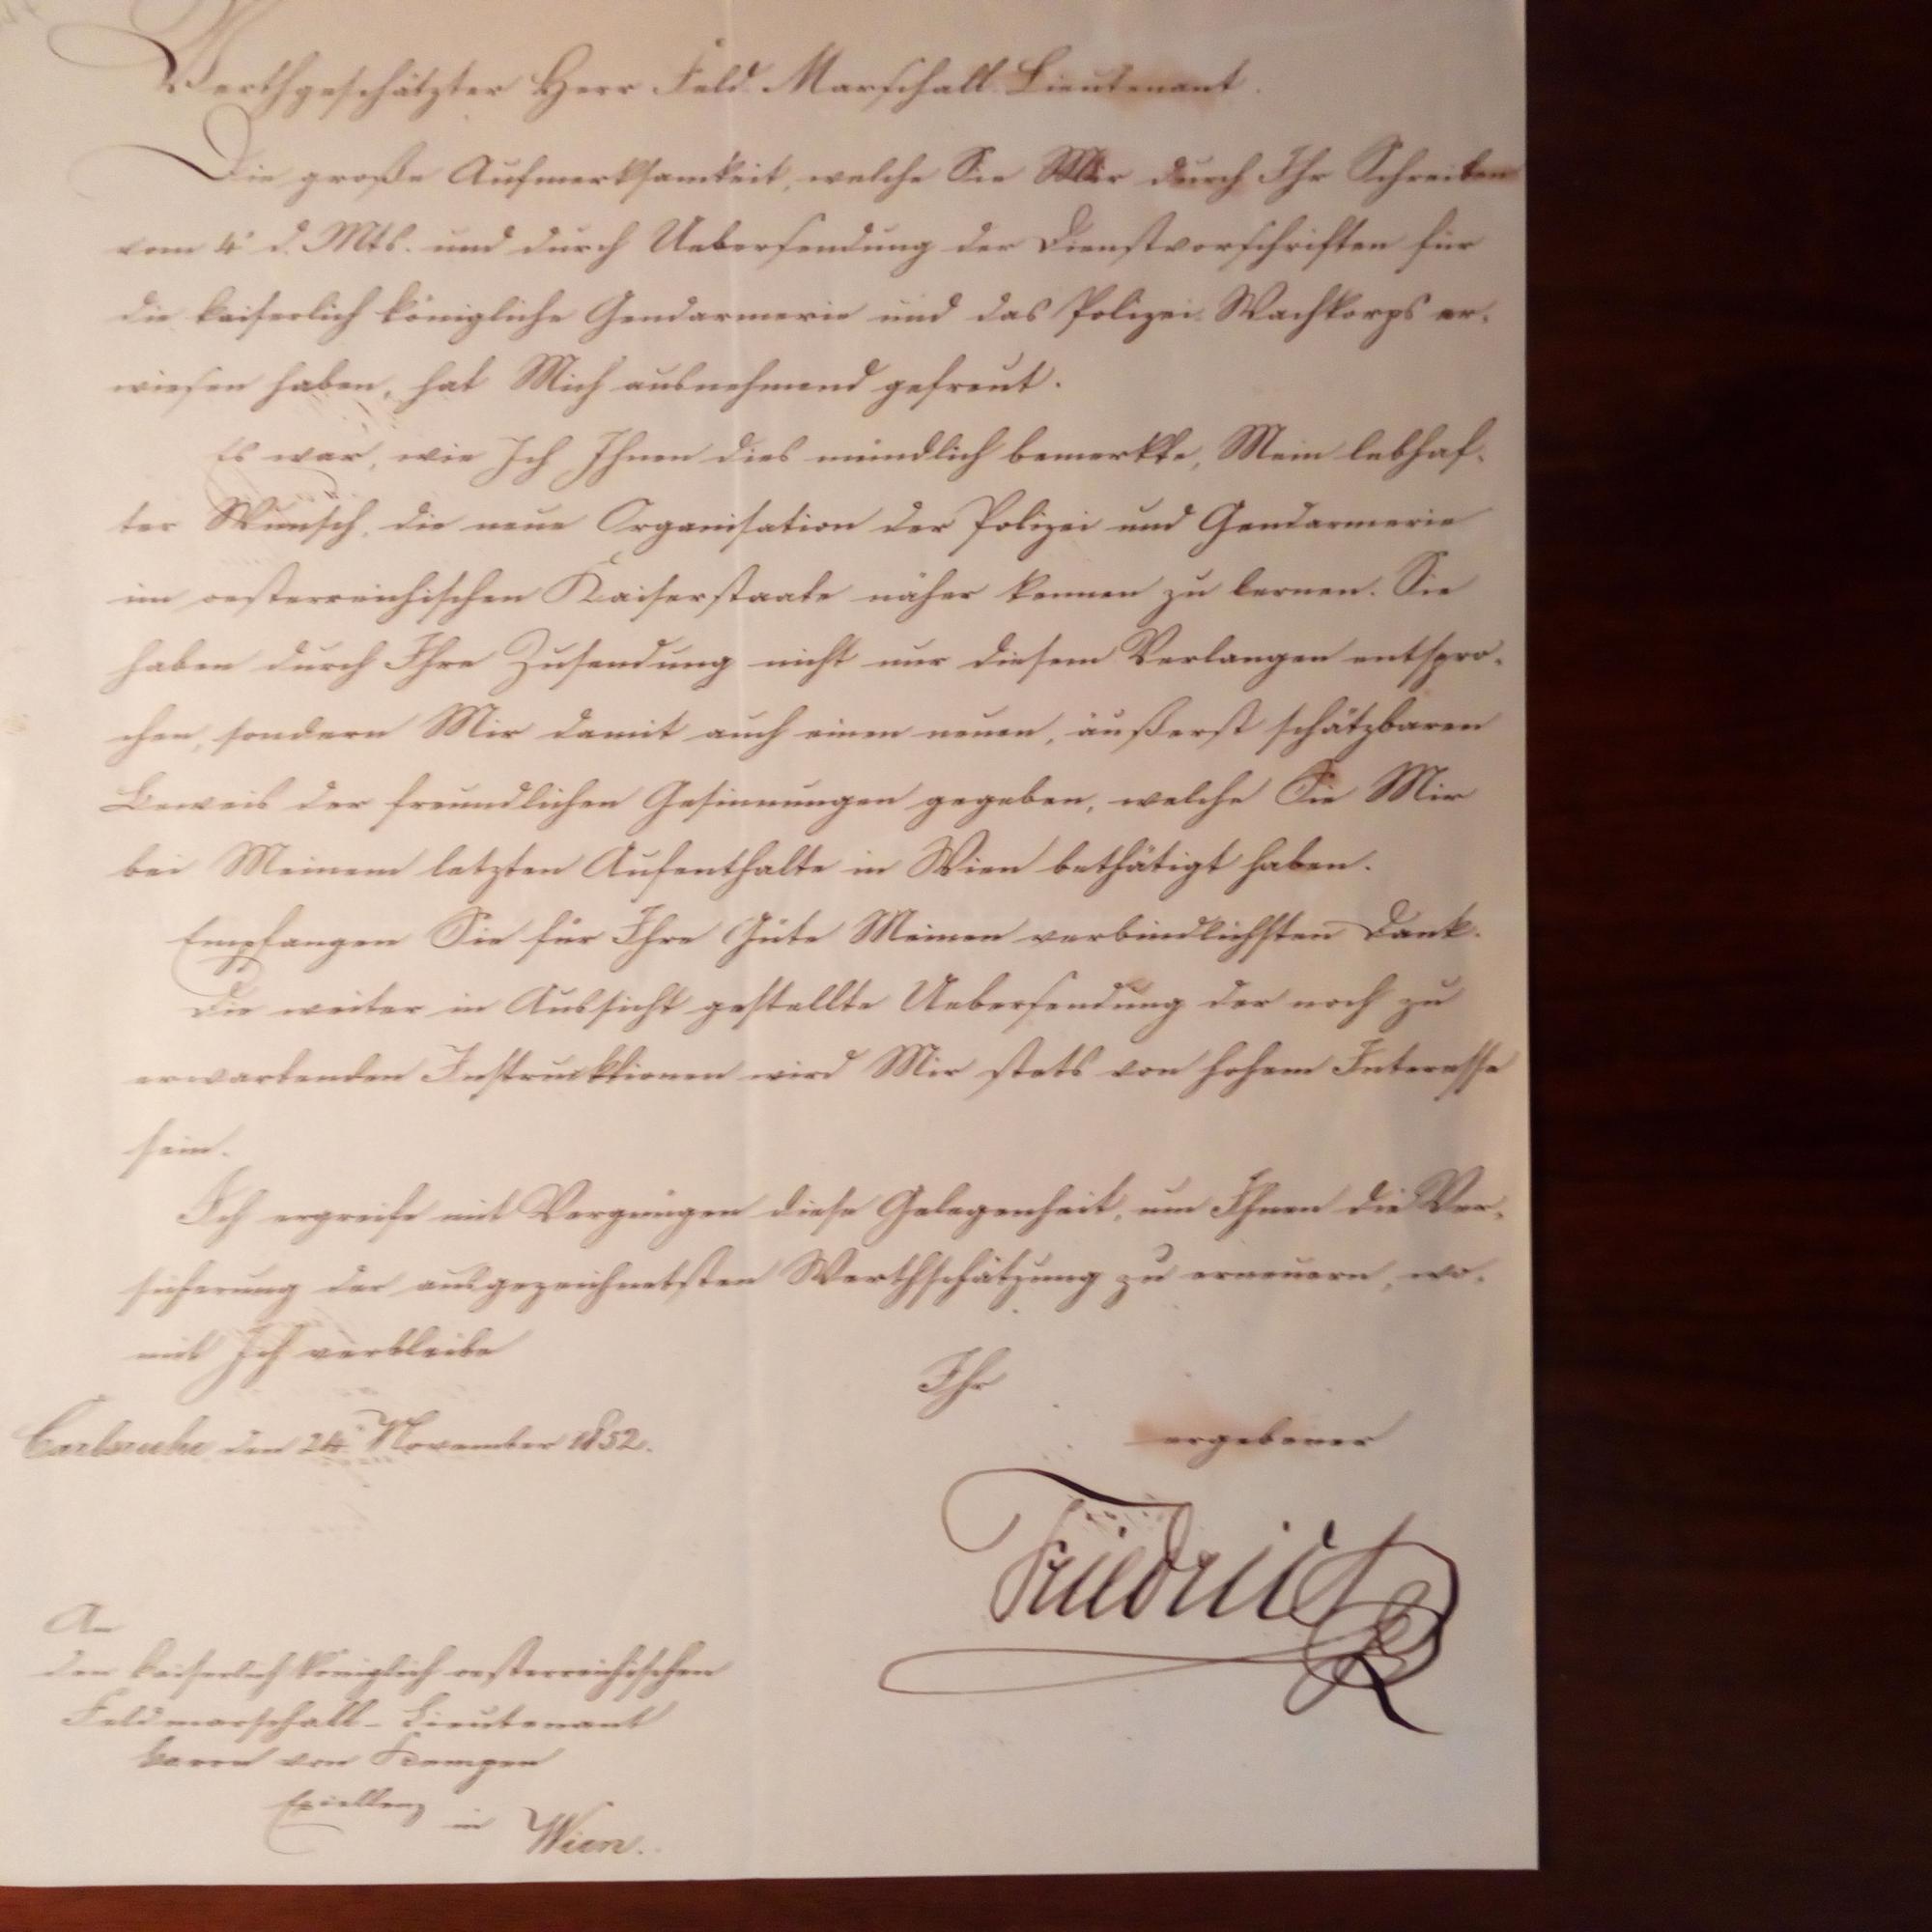 Werthgeschätzter Herr Feld Marschall Lieutenant.
Die große Aufmerksamkeit, welche Sie Mir durch Ihr Schreiben
vom 4t d. Mts. und durch Uebersendung der Dienstvorschriften für
die kaiserlich königliche Gendarmerie und das Polizei-Wachkorps er-
wiesen haben, hat Mich ausnehmend gefreut.
Es war, wie Ich Ihnen dies mündlich bemerkte, Mein lebhaf-
ter Wunsch, die neue Organisation der Polizei und Gendarmerie
im oesterreichischen Kaiserstaate näher kennen zu lernen. Sie
haben durch Ihre Zusendung nicht nur diesem Verlangen entspro-
chen, sondern Mir damit auch einen neuen, äußerst schätzbaren
Beweis der freundlichen Gesinnungen gegeben, welche Sie Mir
bei Meinem letzten Aufenthalte in Wien bethätigt haben.
Empfangen Sie für Ihre Güte Meinen verbindlichsten Dank.
Die weiter in Aussicht gestellte Uebersendung der noch zu
erwartenden Instrucktionen wird Mir stets von hohem Interesse
sein.
Ich ergreife mit Vergnügen diese Gelegenheit, um Ihnen die Ver-
sicherung der ausgezeichnetsten Werthschätzung zu erneuern, wo-
mit Ich verbleibe
Ihr
ergebener
Carlsruhe, den 24t November 1852.
Friedrich
An
den kaiserlich königlich oesterreichischen
Feldmarschall-Lieutenant
Baron von Kempen
Excellenz
in Wien.